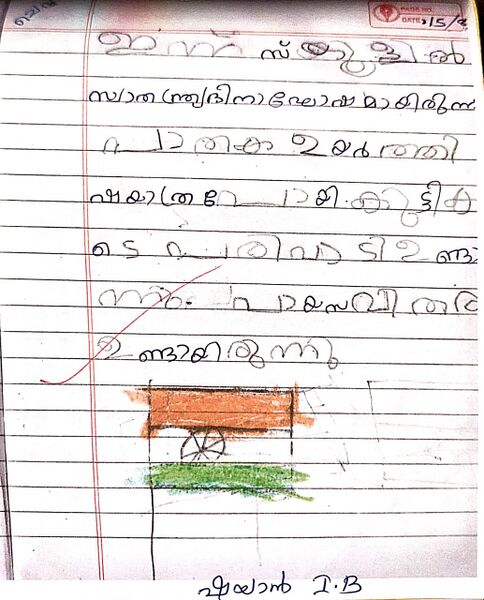 PAGE NO.
DATE: 15/8
ഇന്ന് സ്കൂളിൽ
സ്വാതന്ത്ര്യദിനാഘോഷമായിരുന്ന
പതാക ഉയർത്തി
ഘയാത്ര പോയി. കുട്ടിക
ടെ പരിപാടി ഉണ്ടാ
ന്നു. പായസവിതര
ഉണ്ടായിരുന്നു
ഷയാൻ I.B